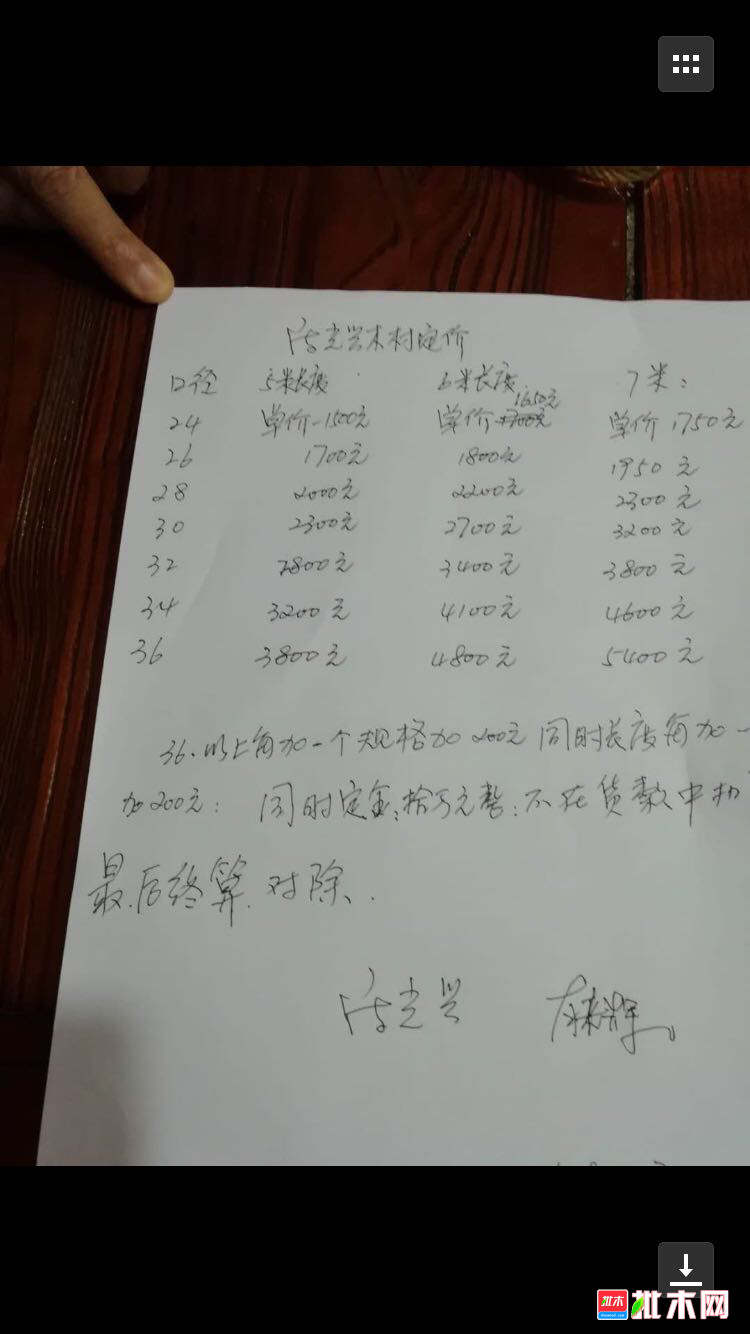 光兴木材定价
口径 5米长度 6米长度 7米:
24 单价-1500元 单价1700元 1650元 单价1750元
26 1700元 1800元 1950元
28 2000元 2200元 2300元
30 2300元 2700元 3200元
32 2800元 3400元 3800元
34 3200元 4100元 4600元
36 3800元 4800元 5400元
36.以上每加一个规格加200元 同时长度每加一
加200元: 同时定金:拾万元整:不在货款中扣
最后终算.对除.
光兴
批木 批木网